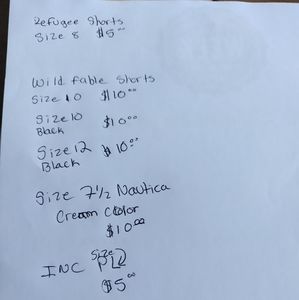 Refugee Shorts
Size 8 $5⁰⁰
Wild Fable Shorts
Size 10 $10⁰⁰
Size 10 $10⁰⁰
Black
Size 12 $10⁰⁰
Black
Size 7½ Nautica
Cream Color
$10⁰⁰
Size
INC
$5⁰⁰